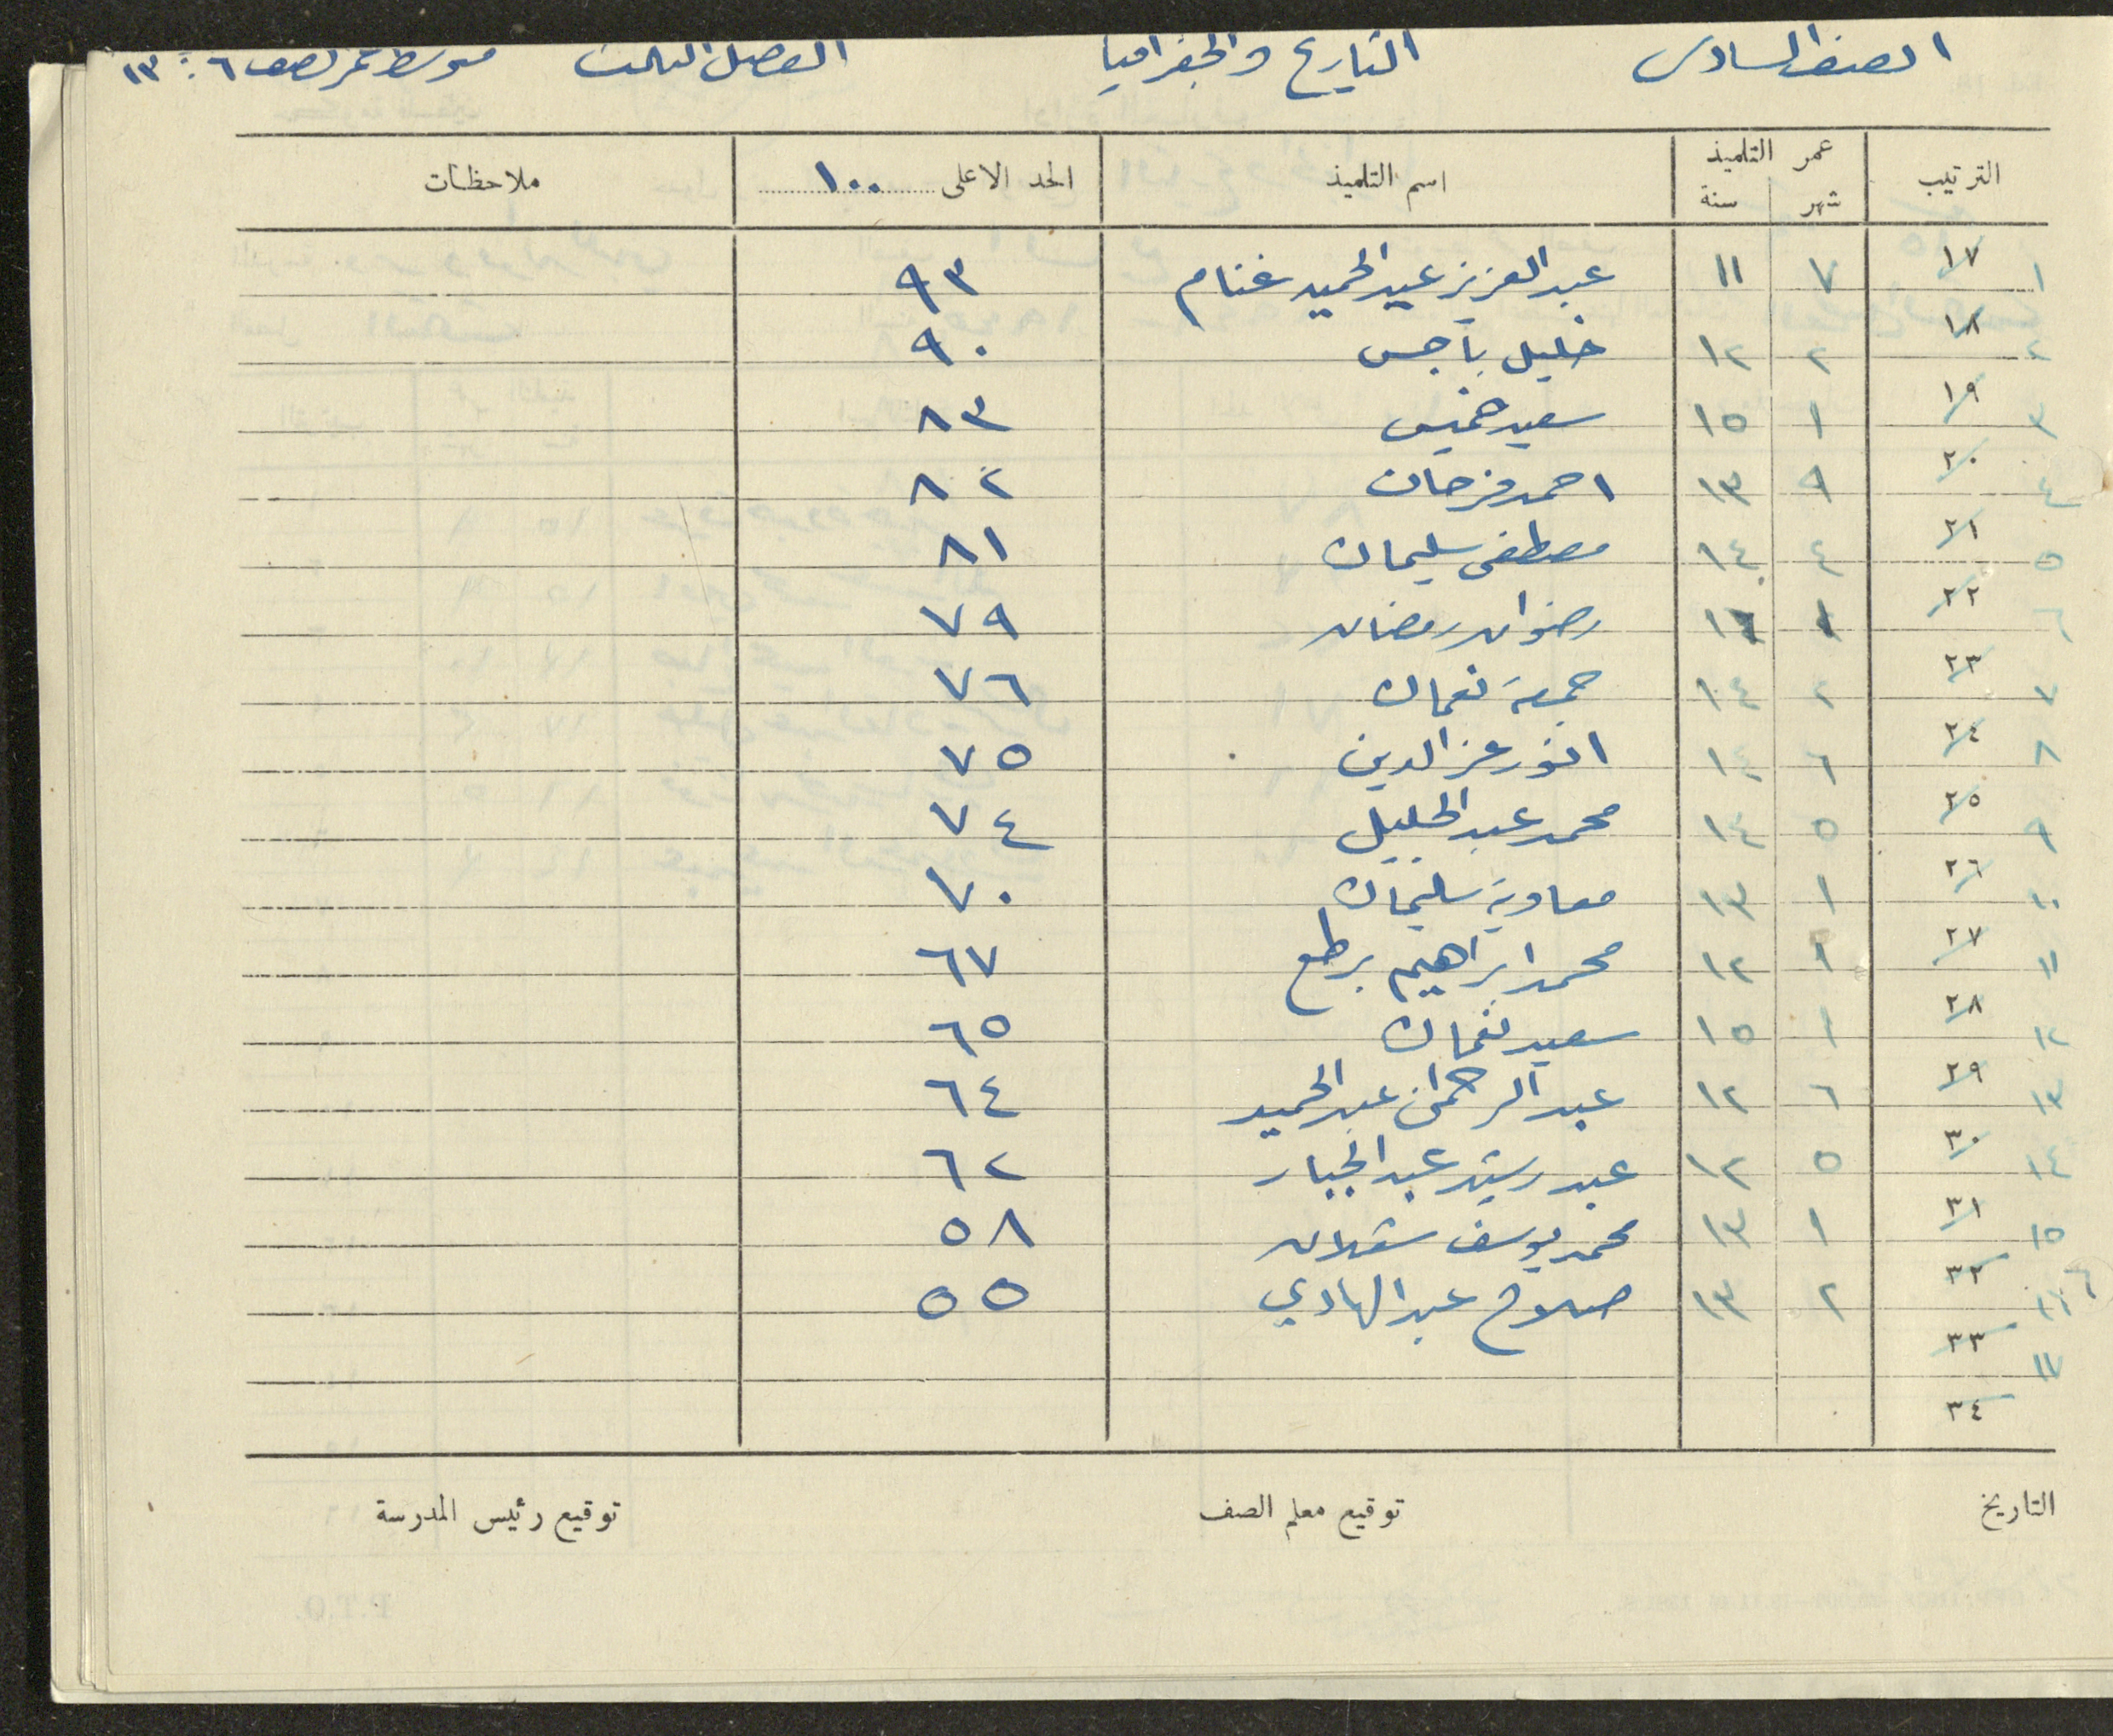 الصف السادس التاريخ والجغرافيا الفصل الثالث متوسط عمر الصف ٦ : ١٣
الترتيب عمر التلميذ اسم التلميذ الحد الاعلى ١٠٠ ملاحظات
شهر سنة
١ ١٧ ٧ ١١ عبد العزيز عبد الحميد غنام ٩٣
٢ ١٨ ٢ ١٢ خليل باجس ٩٠
٣ ١٩ ١ ١٥ سعيد خميس ٨٣
٤ ٢٠ ٩ ١٣ احمد فرحان ٨٢
٥ ٢١ ٤ ١٤ مصطفى سليمان ٨١
٦ ٢٢ رضوان رمضان ٧٩
٧ ٢٣ ٢ ١٤ جمعة نعمان ٧٦
٨ ٢٤ ٦ ١٤ انور عز الدين ٧٥
٩ ٢٥ ٥ ١٤ محمد عبد الجليل ٧٤
١٠ ٢٦ ١ ١٣ معاوية سليمان ٧٠
١١ ٢٧ ١٢ محمد ابراهيم برطع ٦٧
١٢ ٢٨ ١ ١٥ سعيد نعمان ٦٥
١٣ ٢٩ ٦ ١٢ عبد الرحمن عبد الحميد ٦٤
١٤ ٣٠ ٥ ١٢ عبد رشيد عبد الجبار ٦٢
١٥ ٣١ ١ ١٣ محمد يوسف شعلان ٥٨
١٦ ٣٢ ٢ ١٣ صلاح عبد الهادي ٥٥
١٧ ٣٣
٣٤
التاريخ توقيع معلم الصف توقيع رئيس المدرسة